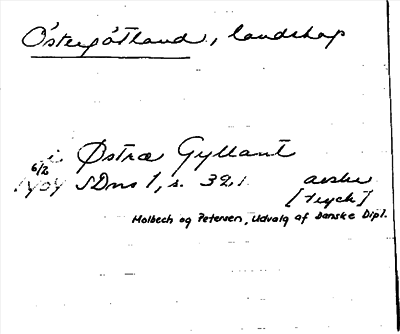 Östergötland, landskap
i Østræ Gyllant
6/2
1404 SDns 1, s. 321 avskr
[tryck]
Molbech og Petersen, Udvalg af Danske Dipl.